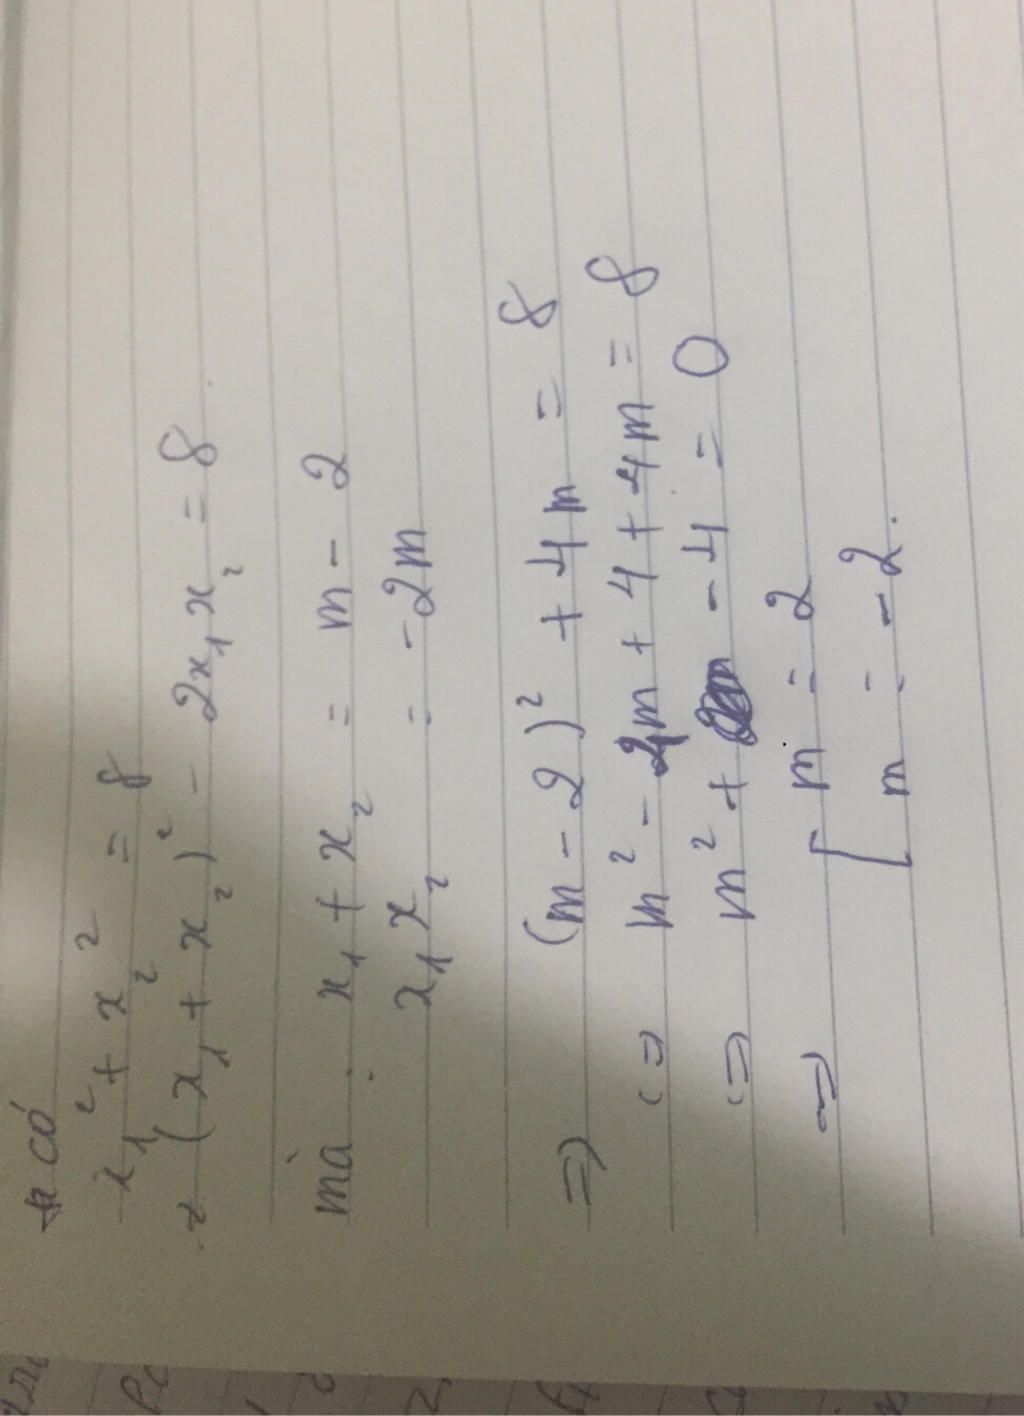 ta có
x₁² + x₂² = 8
(x₁ + x₂)² - 2x₁x₂ = 8
mà x₁ + x₂ = m - 2
x₁x₂ = -2m
=> (m - 2)² + 4m = 8
<=> m² - 4m + 4 + 4m = 8
<=> m² + - 4 = 0
=> [ m = 2
m = -2.